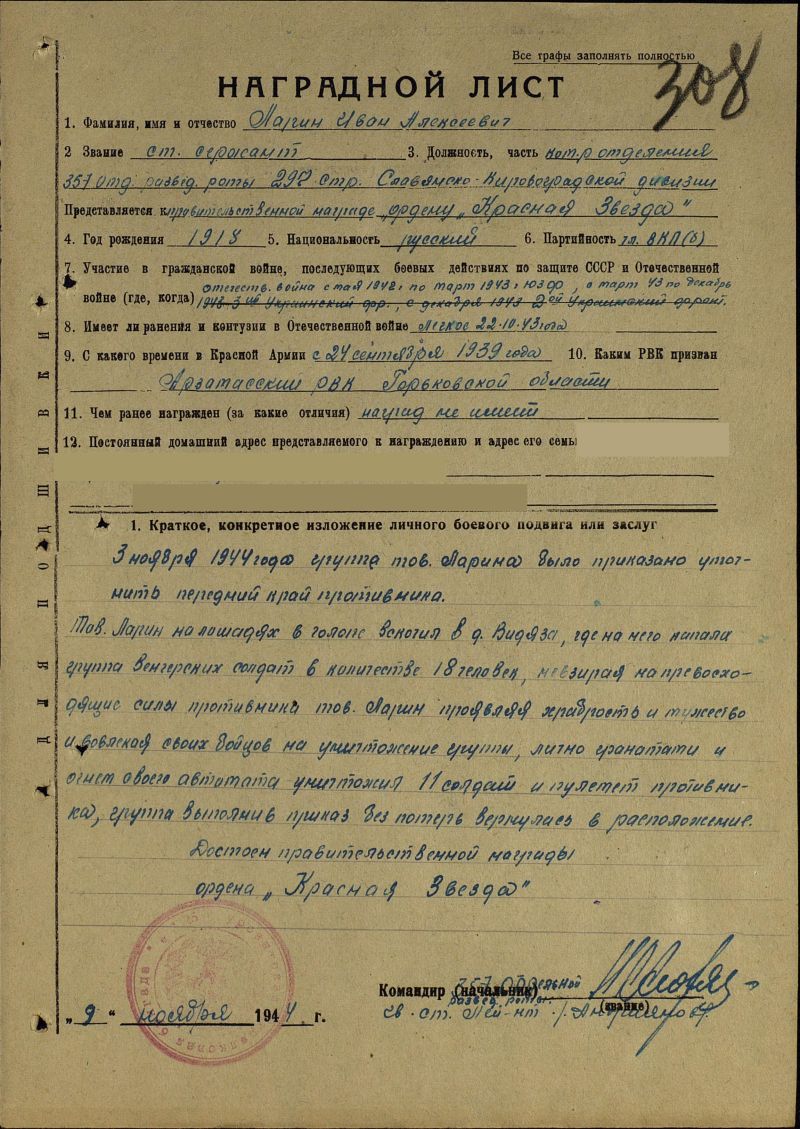 Все графы заполнять полностью
308
НАГРАДНОЙ ЛИСТ
1. Фамилия, имя и отчество Ларин Иван Алексеевич
2 Звание ст. сержант 3. Должность, часть ком-р отделения
357 Отд. развед. роты 297 Стр. Славянско-Кировоградской дивизии
Представляется к правительственной награде „ордену „Красная Звезда"
4. Год рождения 1918 5. Национальность русский 6. Партийность чл. ВКП(б)
7. Участие в гражданской войне, последующих боевых действиях по защите СССР и Отечественной
отечеств. война с мая 1942 г по март 1943 г ЮЗФ, с март 43 по декабрь
войне (где, когда) 1943 3-ий Украинский фр., с декабря 1943 2ой Украинский фронт.
8. Имеет ли ранения и контузии в Отечественной войне легкое 22.10.43 года
9. С какого времени в Красной Армии с 24 сентября 1939 года 10. Каким РВК призван
Арзамасский РВК Горьковской области
11. Чем ранее награжден (за какие отличия) наград не имеет
12. Постоянный домашний адрес представляемого к награждению и адрес его семьи
1. Краткое, конкретное изложение личного боевого подвига или заслуг
3 ноября 1944 года группа тов. Ларина было приказано уточ-
нить передний край противника.
Тов. Ларин на лошадях в голопе вскочил в д. Видяза, где на него напала
группа венгерских солдат в количестве 18 человек, невзирая на превосхо-
дящие силы противника тов. Ларин проявляя храбрость и мужество
и вовлекая своих бойцов на уничтожение группы, лично гранатами и
огнем своего автомата уничтожил 11 солдат и пулемет противни-
ка, группа выполнив приказ без потерь вернулась в расположение.
Достоен правительственной награды
ордена „Красная Звезда"
357 отдельной
Командир (начальник)
развед. роты
(звание)
гв. ст. лей-нт
„9" ноября 1944 г.
ДЛЯ ПОДШИВКИ